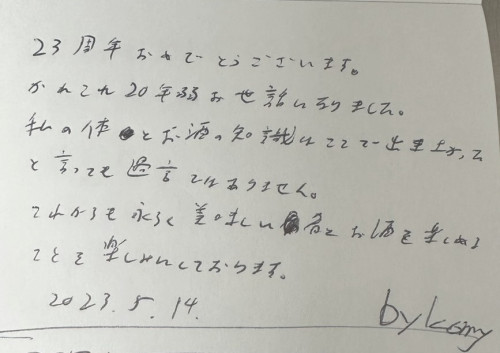 23周年おめでとうございます。
かれこれ20年弱お世話になりました。
私の体とお酒の知識はここで出来上がった
と言っても過言ではありません。
これからも永らく美味しい肴とお酒を楽しめる
ことを楽しみにしております。
2023.5.14.
by